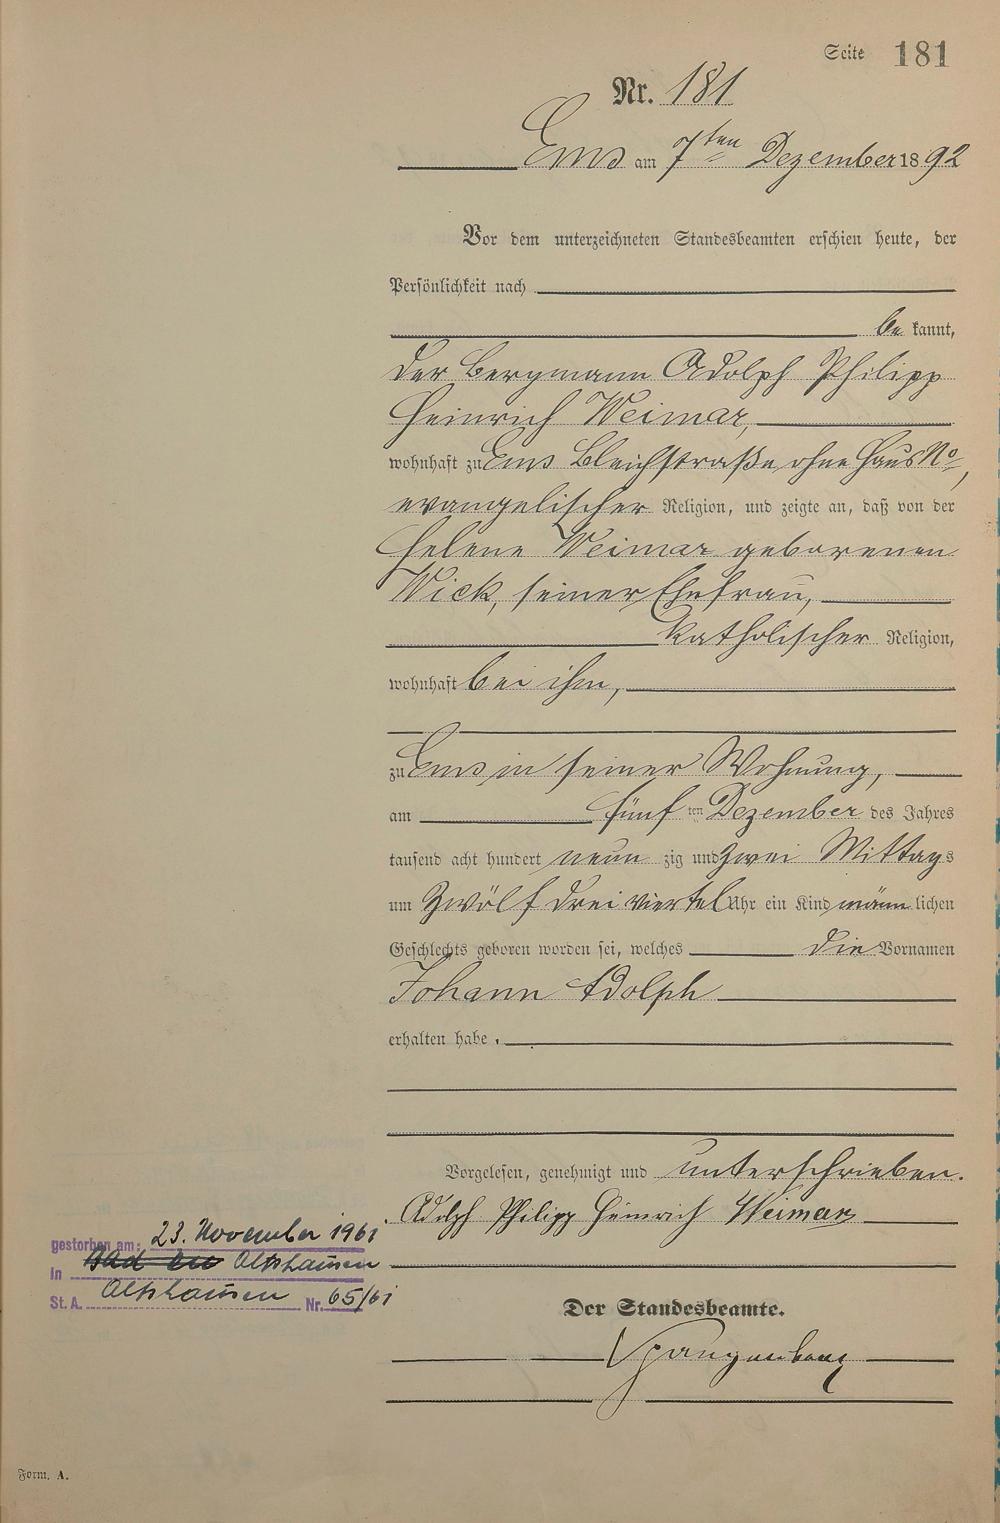 Seite 181
Nr. 181
Ems am 7ten Dezember 1892
Vor dem unterzeichneten Standesbeamten erschien heute, der
Persönlichkeit nach
be kannt,
der Bergmann Adolph Philipp
Heinrich Weimar,
wohnhaft zu Ems Bleichstraße, ohne Haus No,
evangelischer Religion, und zeigte an, daß von der
Helene Weimar geborenen
Wick, seiner Ehefrau,
katholischer Religion,
wohnhaft bei ihm,
zu Ems in seiner Wohnung,
am fünf ten Dezember des Jahres
tausend acht hundert neun zig und zwei Mittags
um zwölf drei viertel Uhr ein Kind männ lichen
Geschlechts geboren worden sei, welches die Vornamen
Johann Adolph
erhalten habe.
Vorgelesen, genehmigt und unterschrieben.
Adolph Philipp Heinrich Weimar
gestorben am: 23. November 1961
In Altshausen
St. A. Altshausen Nr. 65/61
Der Standesbeamte.
Spangenberg
Form. A.